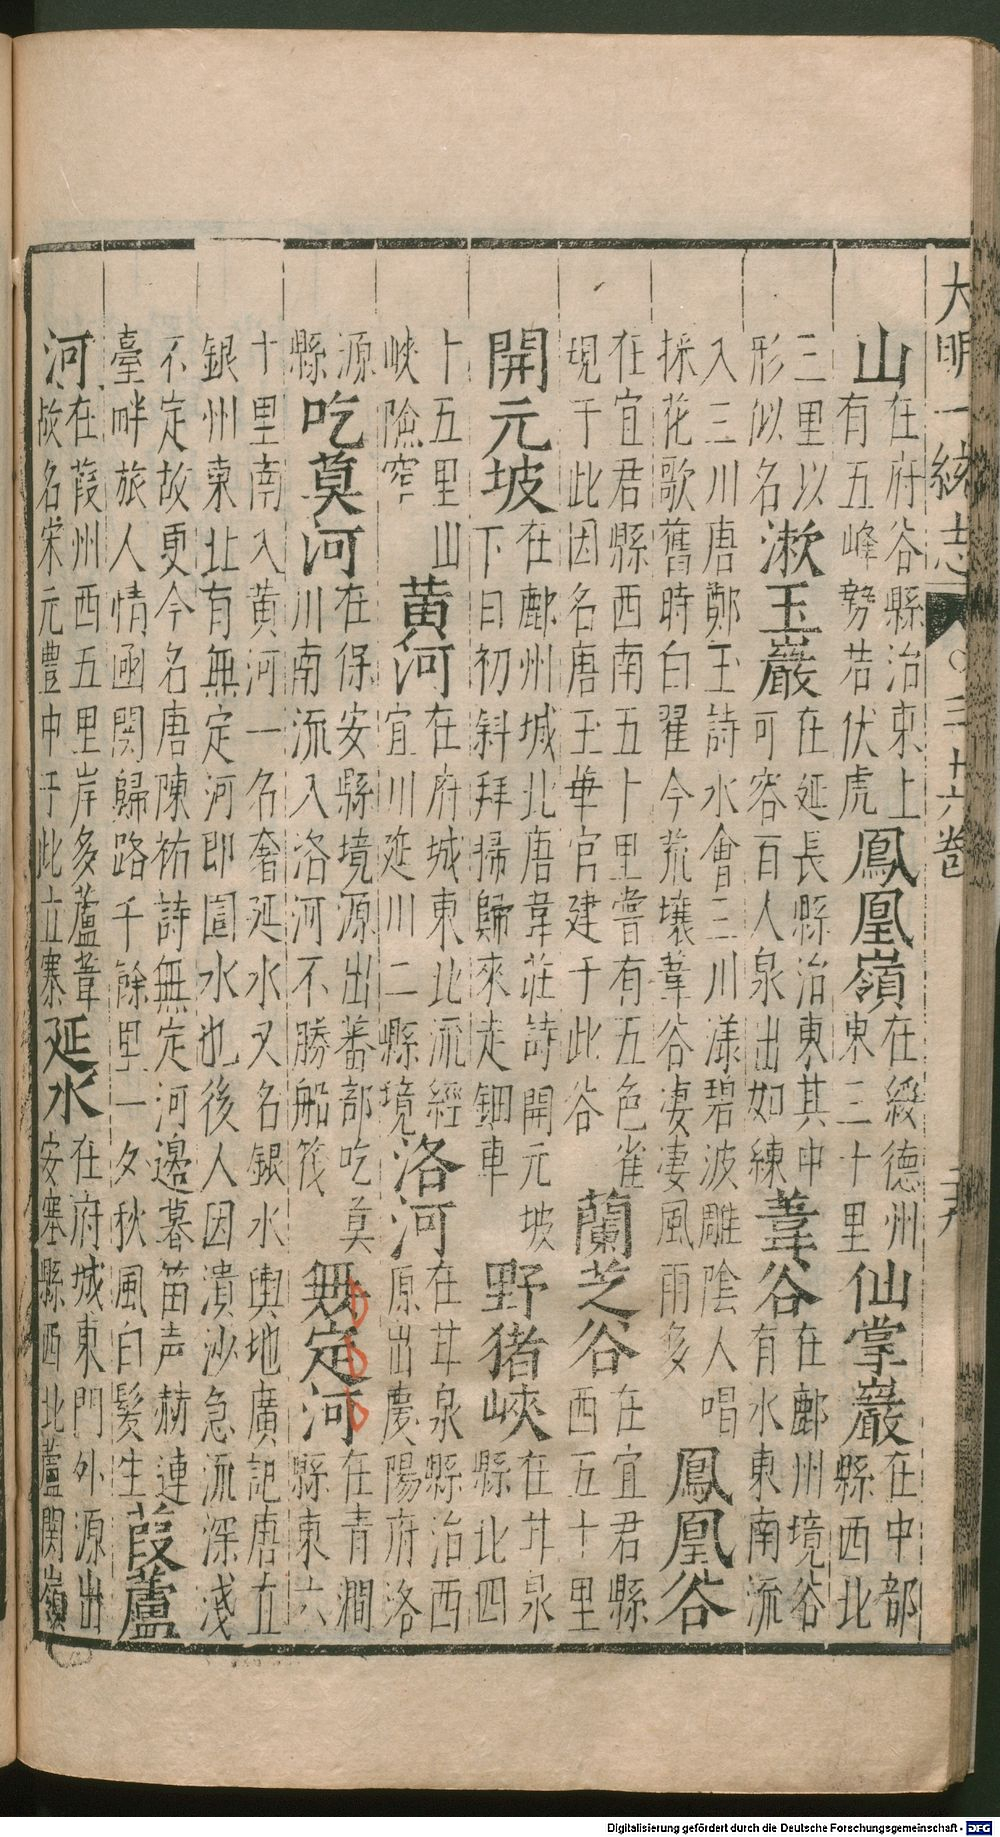 大明一統志 ○三十六卷
山在府谷縣治東上有五峰勢若伏虎鳳凰嶺在綏德州東三十里仙掌巖在中部縣西北
三里以形似名漱玉巖在延長縣治東其中可容百人泉出如練葦谷在鄜州境谷有水東南流
入三川唐鄭玉詩水會三川漾碧波雕陰人唱採花歌舊時白翟今荒壤葦谷凄凄風雨多鳳凰谷
在宜君縣西南五十里嘗有五色雀現于此因名唐玉華宮建于此谷蘭芝谷在宜君縣西五十里
開元坡在鄜州城北唐韋莊詩開元坡下日初斜拜掃歸來走鈿車野猪峽在甘泉縣北四
十五里山峽險窄黄河在府城東北流經宜川延川二縣境洛河在甘泉縣治西原出慶陽府洛
源縣吃莫河在保安縣境源出蕃部吃莫川南流入洛河不勝船筏無定河在青澗縣東六
十里南入黄河一名奢延水又名銀水輿地廣記唐立銀州東北有無定河即圁水也後人因潰沙急流深淺
不定故更今名唐陳祐詩無定河邊暮笛声赫連臺畔旅人情函関歸路千餘里一夕秋風白髪生葭蘆
河在葭州西五里岸多蘆葦故名宋元豊中于此立寨延水在府城東門外源出安塞縣西北蘆関嶺
Digitalisierung gefördert durch die Deutsche Forschungsgemeinschaft - DFG